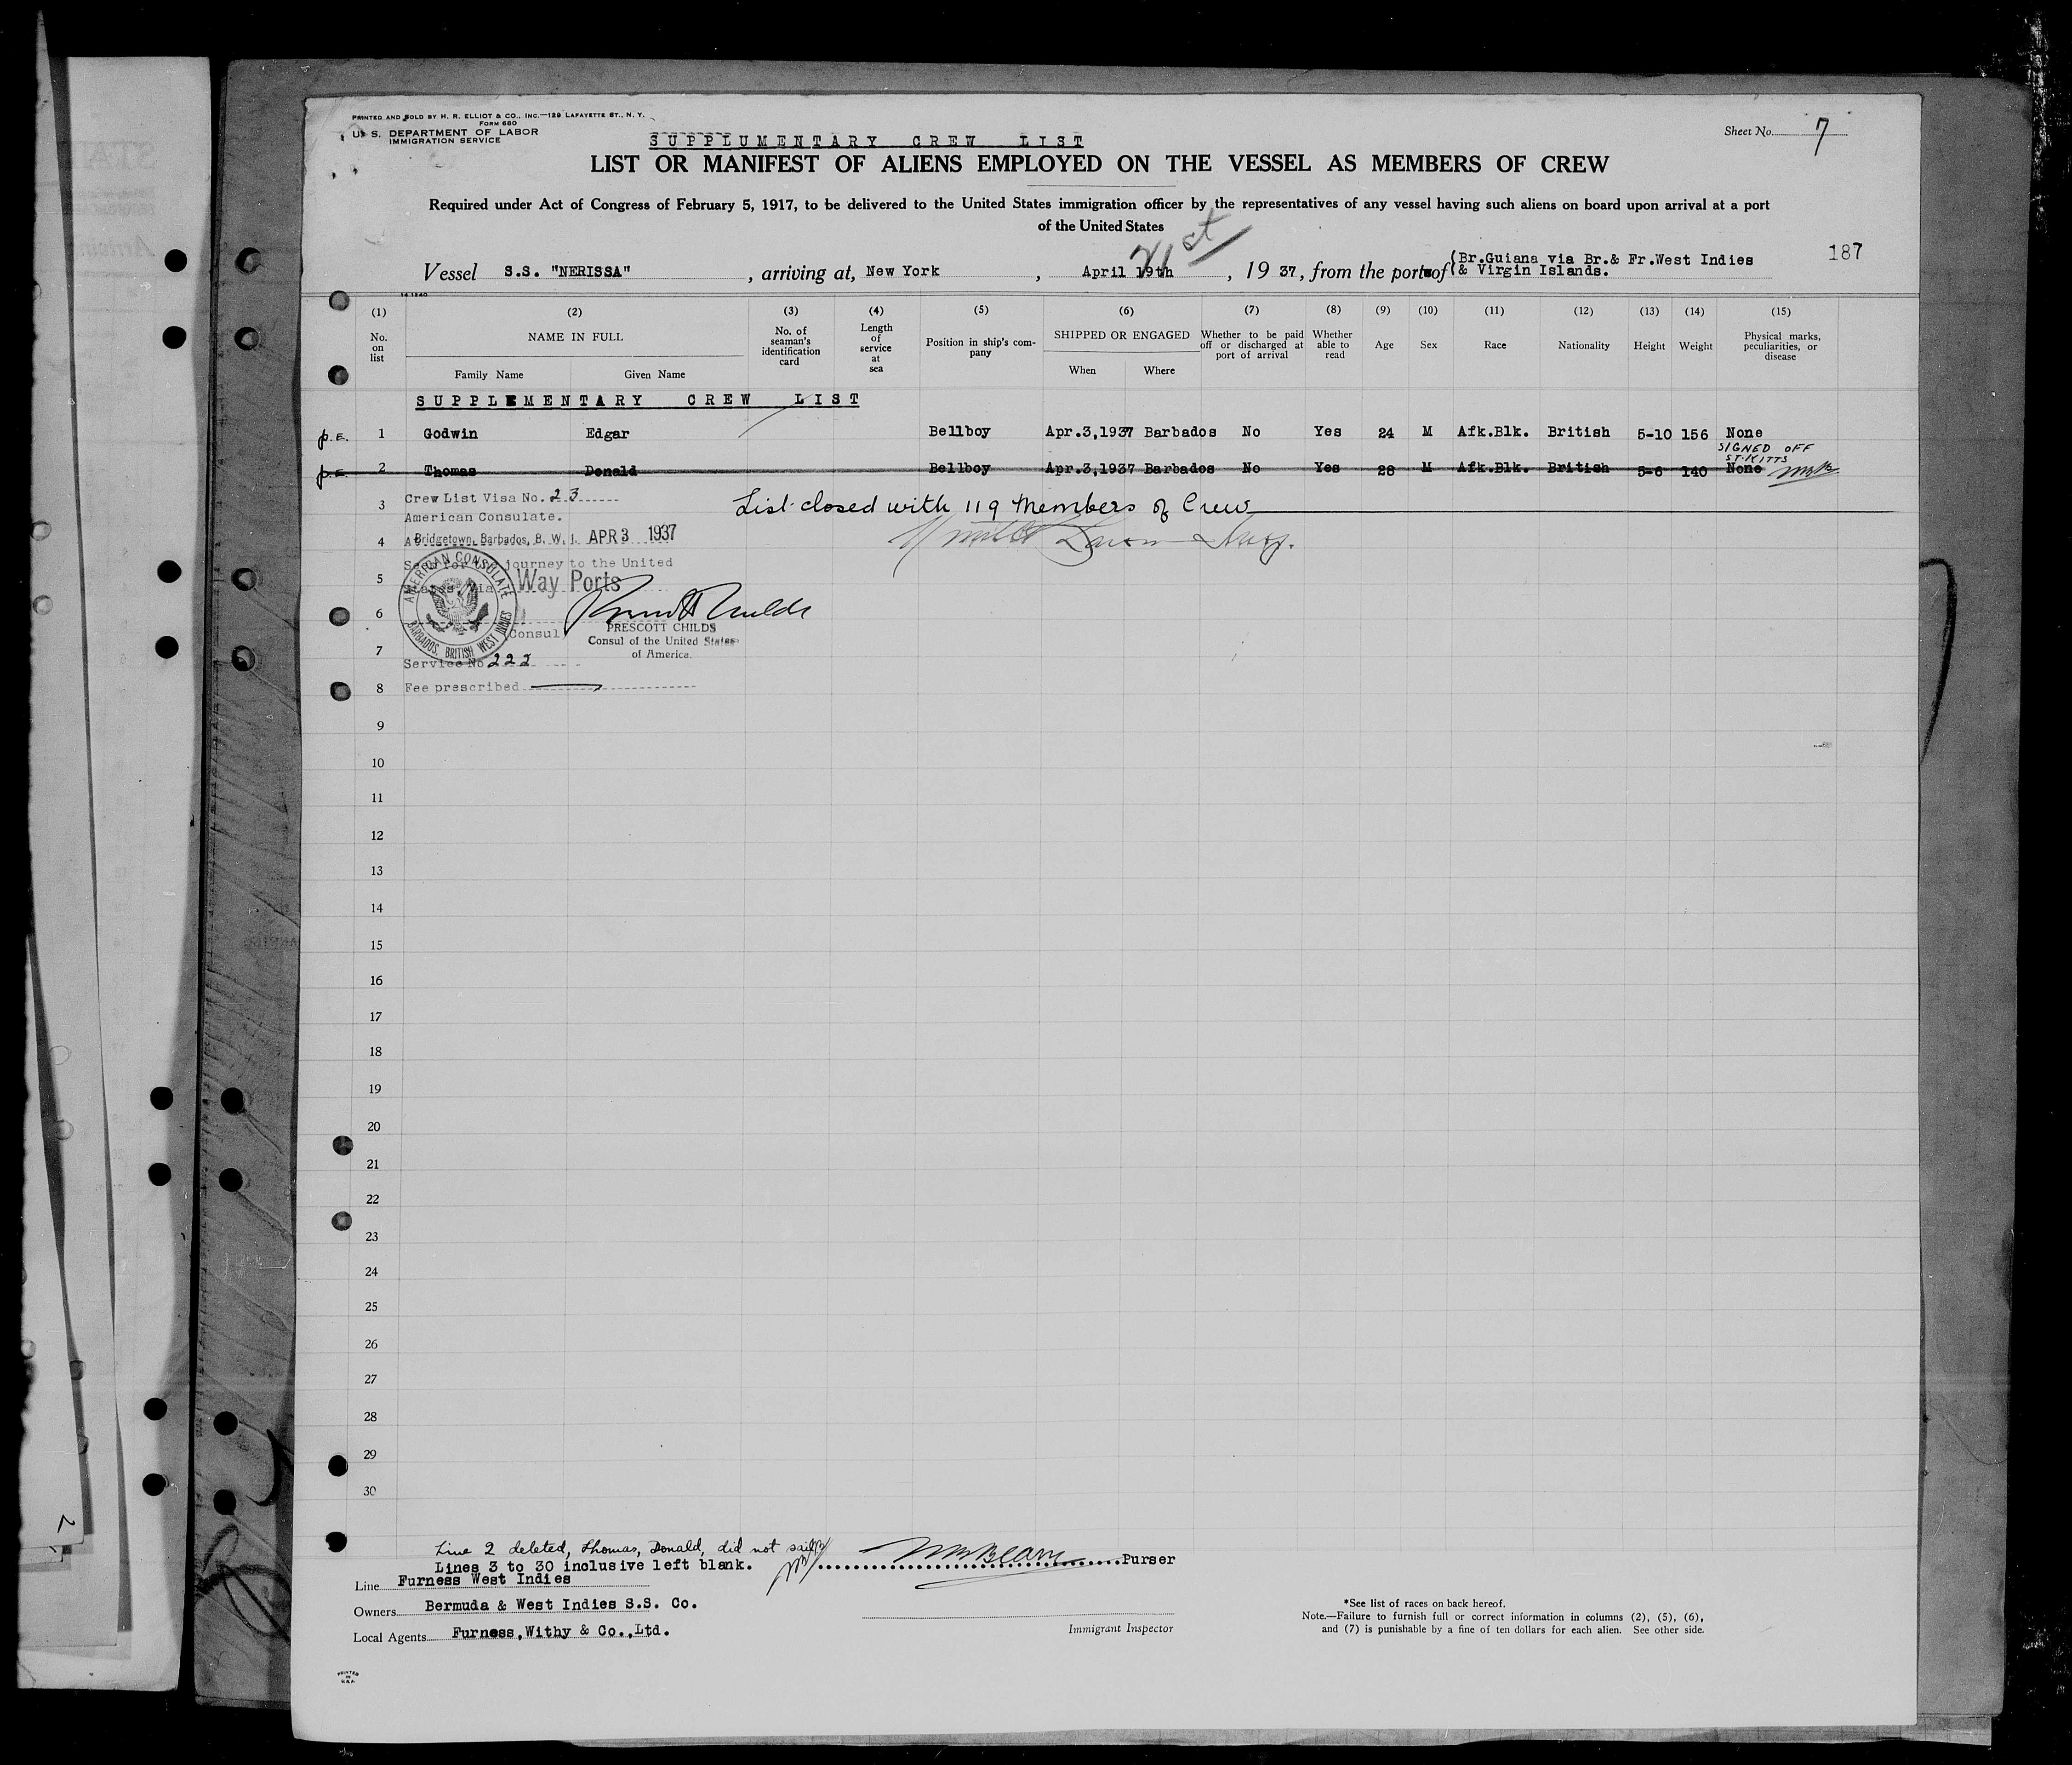 PRINTED AND SOLD BY H. R. ELLIOT & CO., INC.—129 LAFAYETTE ST., N. Y.
FORM 680
U. S. DEPARTMENT OF LABOR
IMMIGRATION SERVICE
Sheet No. 7
SUPPLUMENTARY CREW LIST
LIST OR MANIFEST OF ALIENS EMPLOYED ON THE VESSEL AS MEMBERS OF CREW
Required under Act of Congress of February 5, 1917, to be delivered to the United States immigration officer by the representatives of any vessel having such aliens on board upon arrival at a port
of the United States
21st
187
Vessel S.S. "NERISSA", arriving at, New York, April 19th, 1937, from the port of (Br.Guiana via Br.& Fr.West Indies
& Virgin Islands.
(1) (2) (3) (4) (5) (6) (7) (8) (9) (10) (11) (12) (13) (14) (15)
No. on list NAME IN FULL Family Name Given Name No. of seaman's identification card Length of service at sea Position in ship's company SHIPPED OR ENGAGED When Where Whether to be paid off or discharged at port of arrival Whether able to read Age Sex Race Nationality Height Weight Physical marks, peculiarities, or disease
SUPPLEMENTARY CREW LIST
p.E. 1 Godwin Edgar Bellboy Apr.3,1937 Barbados No Yes 24 M Afk.Blk. British 5-10 156 None
SIGNED OFF
ST.KITTS
p.E. 2 Thomas Donald Bellboy Apr.3,1937 Barbados No Yes 28 M Afk.Blk. British 5-6 140 None
3 Crew List Visa No. 23
List closed with 119 Members of Crew
American Consulate.
4 At Bridgetown, Barbados, B. W. I. APR 3 1937
journey to the United
5 Way Ports
AMERICAN CONSULATE
BARBADOS, BRITISH WEST INDIES
6
Consul PRESCOTT CHILDS
Consul of the United States
of America.
7
Service No 222
8 Fee prescribed
9
10
11
12
13
14
15
16
17
18
19
20
21
22
23
24
25
26
27
28
29
30
Line 2 deleted, Thomas, Donald, did not sail
Lines 3 to 30 inclusive left blank. Purser
Line Furness West Indies
Owners Bermuda & West Indies S.S. Co.
Local Agents Furness,Withy & Co.,Ltd.
Immigrant Inspector
*See list of races on back hereof.
Note.—Failure to furnish full or correct information in columns (2), (5), (6),
and (7) is punishable by a fine of ten dollars for each alien. See other side.
PRINTED
IN
U.S.A.
2